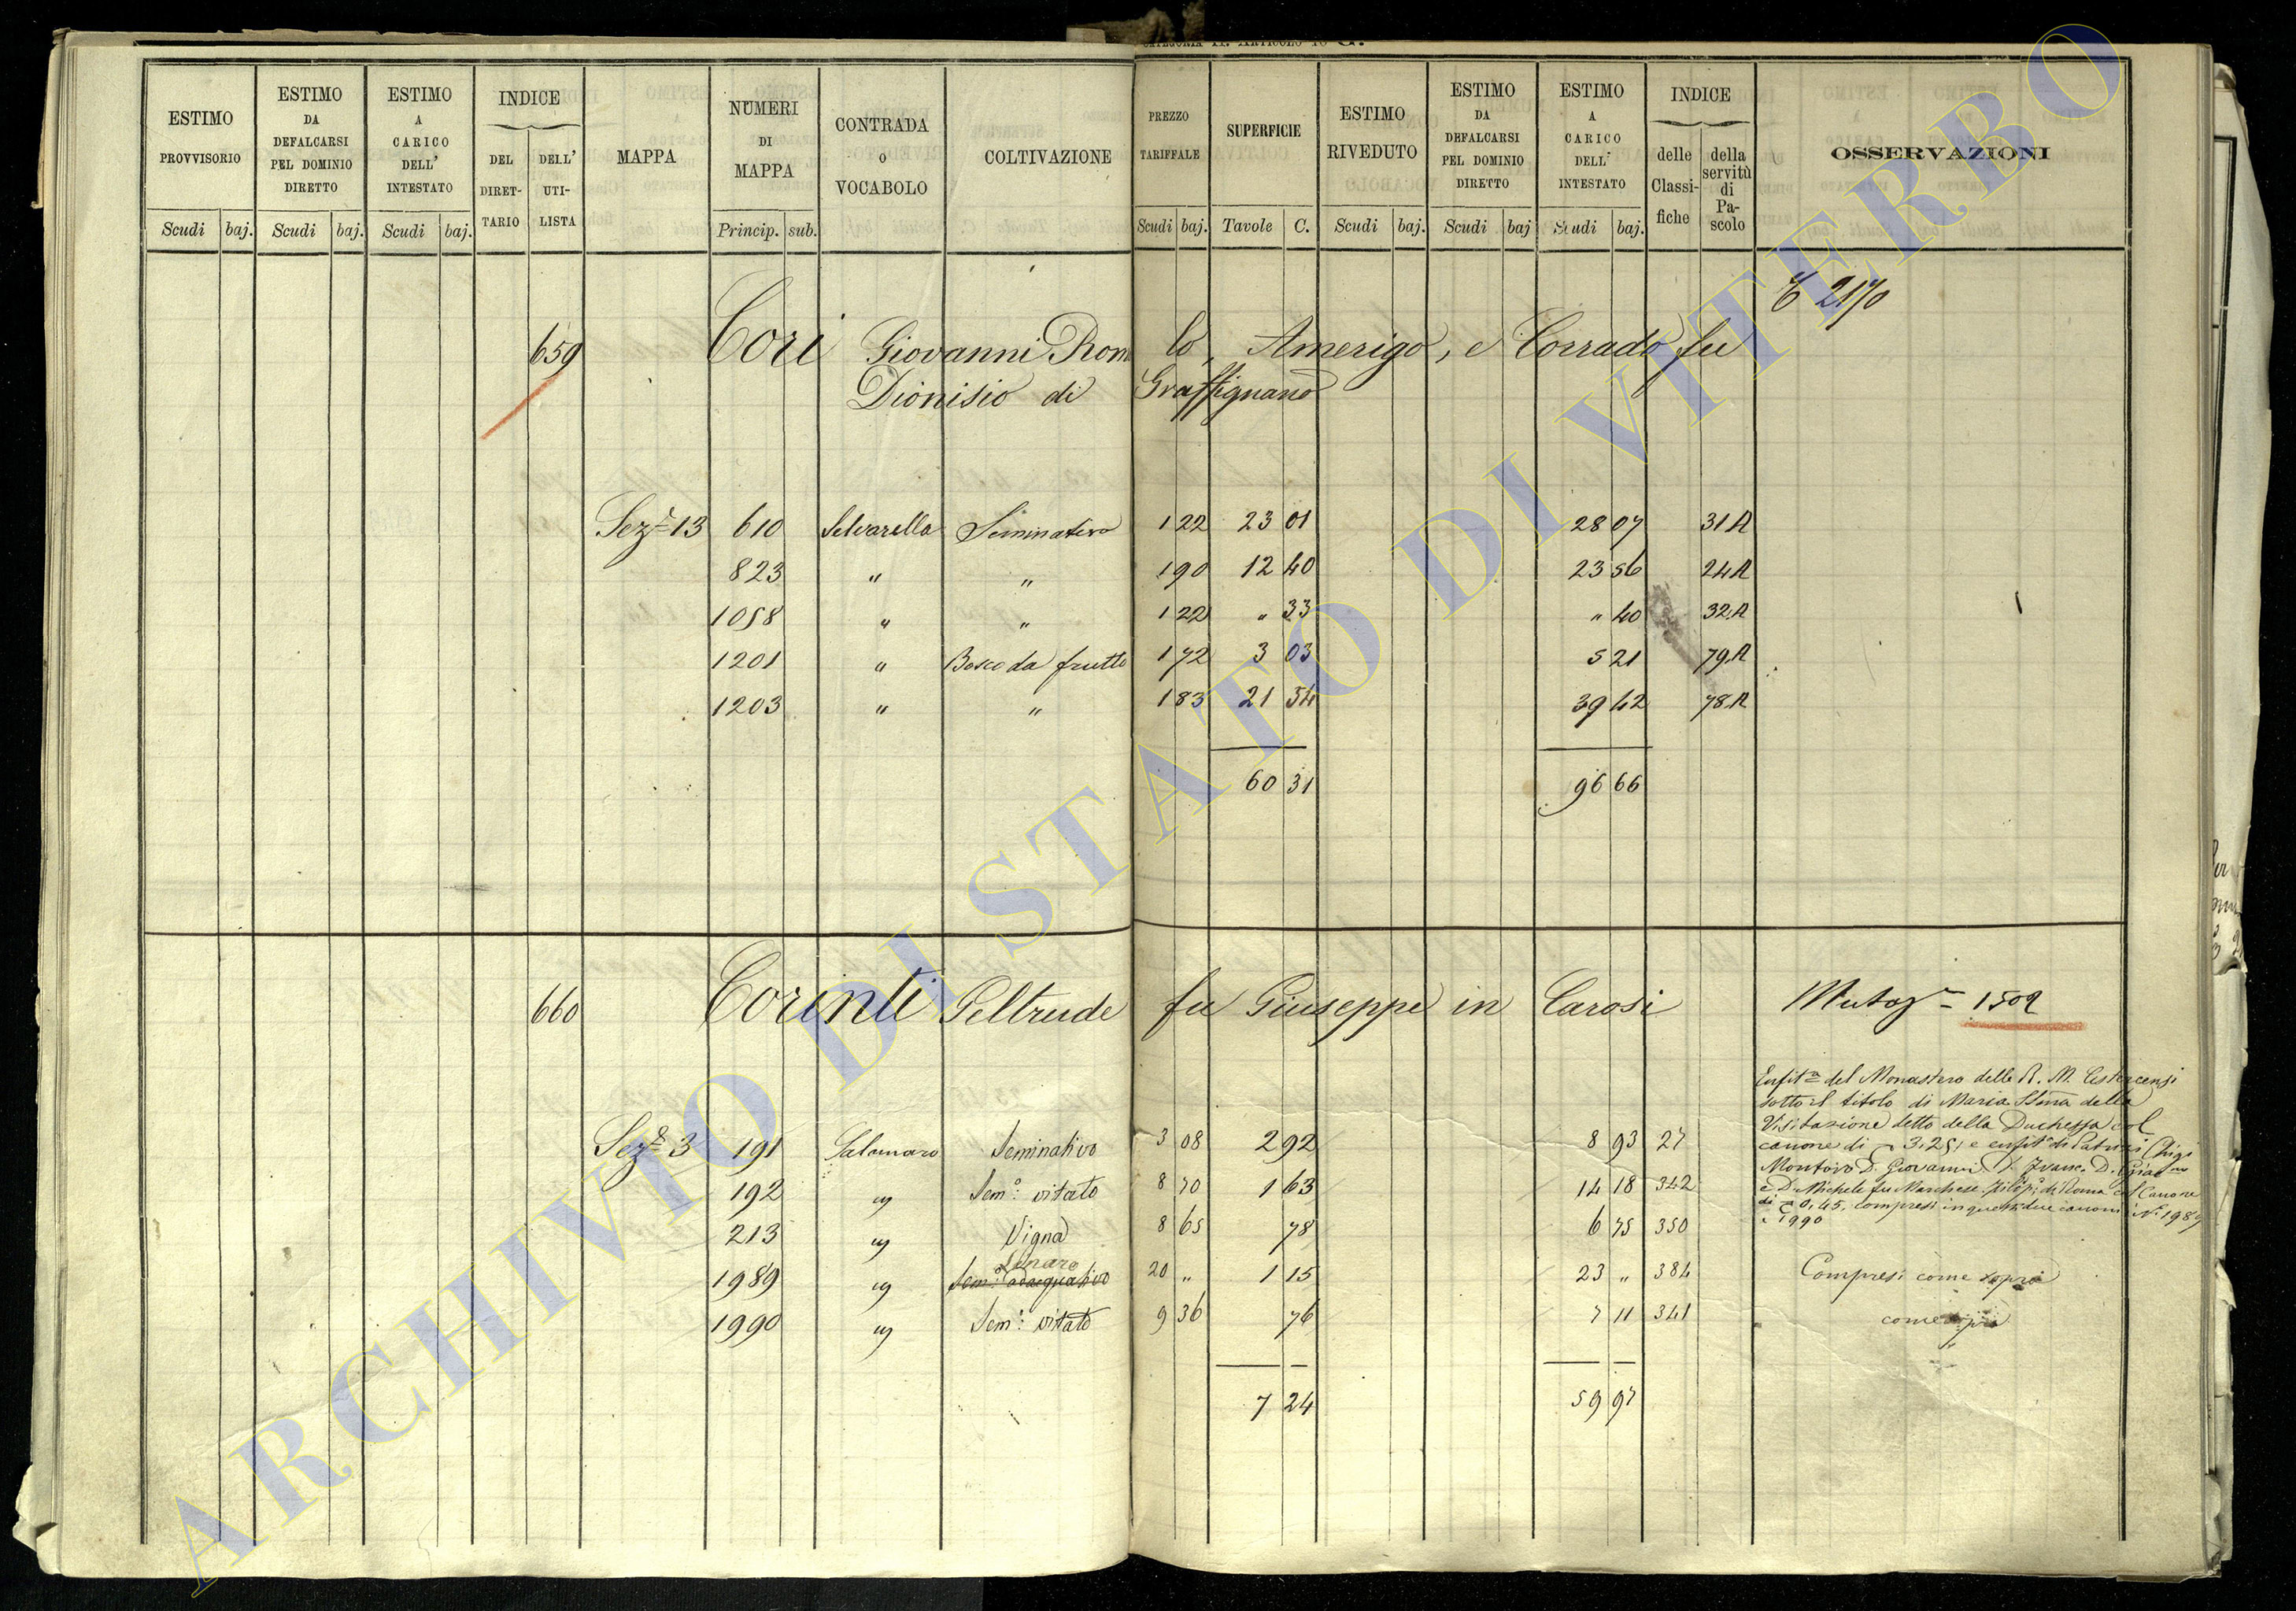 CATEGORIA II. ARTICOLO 10 G.
ESTIMO PROVVISORIO Scudi baj.
ESTIMO DA DEFALCARSI PEL DOMINIO DIRETTO Scudi baj.
ESTIMO A CARICO DELL' INTESTATO Scudi baj.
INDICE DEL DIRETTARIO DELL' UTILISTA
MAPPA
NUMERI DI MAPPA Princip. sub.
CONTRADA O VOCABOLO
COLTIVAZIONE
PREZZO TARIFFALE Scudi baj.
SUPERFICIE Tavole C.
ESTIMO RIVEDUTO Scudi baj.
ESTIMO DA DEFALCARSI PEL DOMINIO DIRETTO Scudi baj
ESTIMO A CARICO DELL' INTESTATO Scudi baj.
INDICE delle Classifiche della servitù di Pascolo
OSSERVAZIONI
2170
659 Cori Giovanni Rom lo, Amerigo, e Corrado fu
Dionisio di Graffignano
Sez.e 13 610 Selvarella Seminativo 1 22 23 01 28 07 31 A
823 " " 1 90 12 40 23 56 24 A
1058 " " 1 22 " 33 " 40 32 A
1201 " Bosco da frutto 1 72 3 03 5 21 79 A
1203 " " 1 83 21 54 39 42 78 A
60 31 96 66
660 Corinti Geltrude fu Giuseppe in Carosi Mutaz.e 1502
Enfit.a del Monastero delle R. M. Cestercensi
sotto il titolo di Maria SSma della
Visitazione detto della Duchessa col
canone di 3.25, e enfit.a di Patrizi Chigi
Montoro D. Giovanni, Franc. D.
e D. Michele fu Marchese Filip. di Roma col Canone
di 0,45. compresi in questi due canoni i N. 1989
e 1990
Sez.e 3 191 Salamaro Seminativo 3 08 2 92 8 93 27
192 " Sem.o vitato 8 70 1 63 14 18 342
213 " Vigna 8 65 78 6 75 350
Linaro
1989 " Sem.o adacquativo 20 " 1 15 23 " 384 Compresi come sopra
1990 " Sem.o vitato 9 36 76 7 11 341 come sopra
7 24 59 97
ARCHIVIO DI STATO DI VITERBO